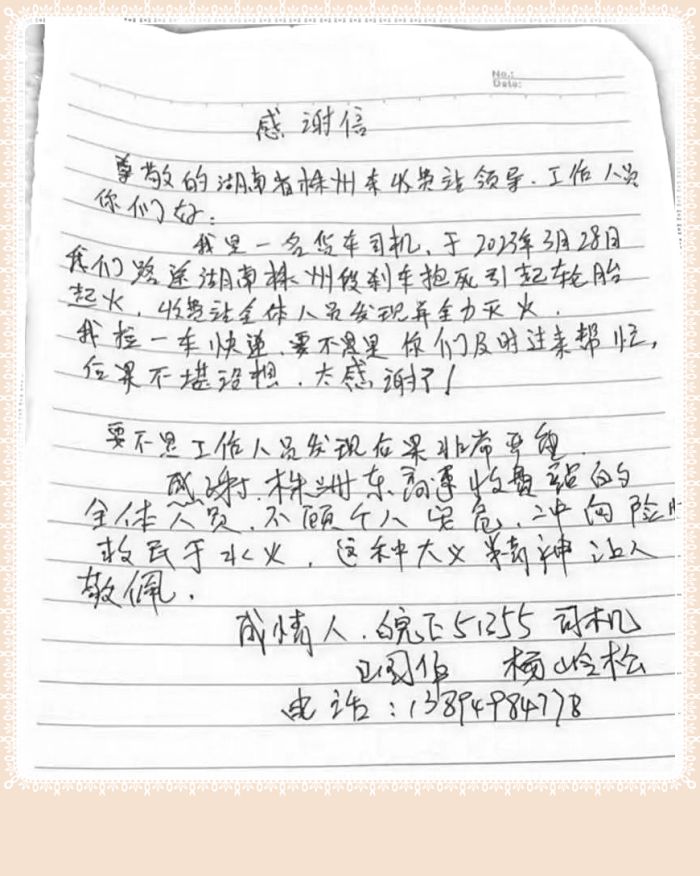 No.:
Date:
感谢信
尊敬的湖南省株州东收费站领导、工作人员
你们好:
我是一名货车司机,于2023年3月28日
我们路途湖南株州段刹车抱死引起轮胎
起火,收费站全体人员发现并全力灭火.
我拉一车快递,要不是是你们及时过来帮忙,
后果不堪设想,太感谢了!
要不是工作人员发现后果非常严重.
感谢,株洲东高速收费站的
全体人员,不顾个人安危,冲向险
救民于水火,这种大义 精神让人
敬佩.
感情人,皖 51355 司机
杨 松
电话:13894984778